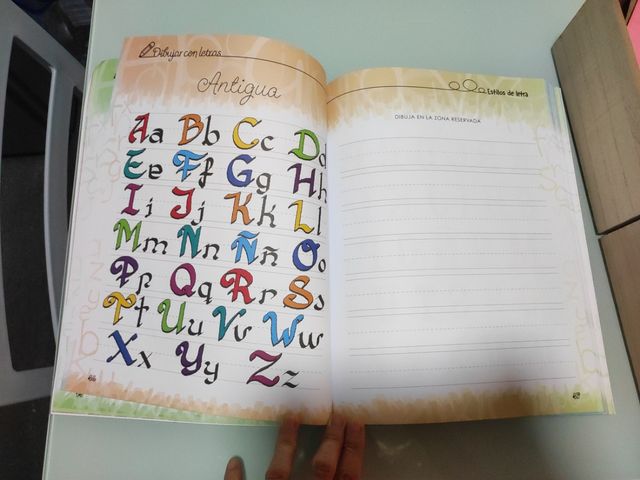 Dibujar con letras
Antigua
Aa Bb Cc Dd
Ee Ff Gg Hh
Ii Jj Kk Ll
Mm Nn Ññ Oo
Pp Qq Rr Ss
Tt Uu Vv Ww
Xx Yy Zz
Estilos de letra
DIBUJA EN LA ZONA RESERVADA